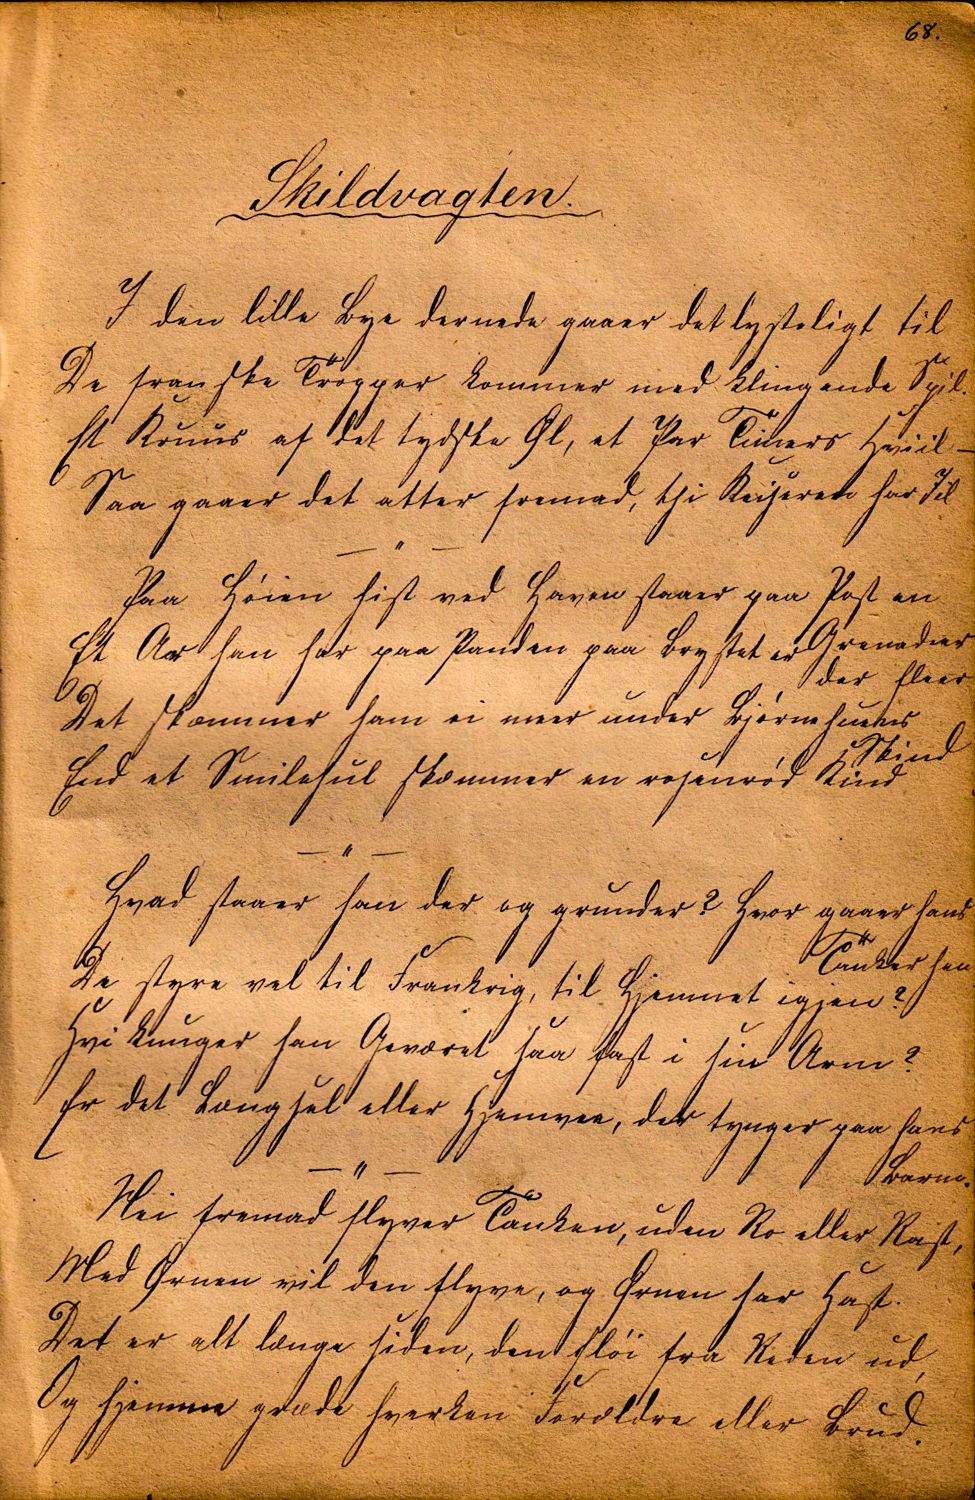 68.
Skildvagten.
I den lille Bye dernede gaaer det lysteligt til
De franske Tropper kommer med klingende Spil.
Et Kruus af det tydske Øl, et Par Timers Hviil –
Saa gaaer det atter fremad, thi Keiseren har Iil
— " —
Paa Høien hist ved Haven staaer paa Post en
Grenadeer
Et Ar han har paa Panden paa Brystet er
der fleer
Det skæmmer ham ei meer under Bjørnehuens
Skind
End et Smilehul skæmmer en rosenrød Kind
— " —
Hvad staaer han der og grunder? Hvor gaaer hans
Tanker hen
De styre vel til Frankrig, til Hjemmet igjen?
Hvi knuger han Geværet saa fast i sin Arm?
Er det Længsel eller Hjemvee, der tynger paa hans
Barm.
— " —
Nei fremad flyver Tanken, uden Ro eller Rast,
Med Ørnen vil den flyve, og Ørnen har Hast.
Det er alt længe siden, den fløi fra Reden ud,
Og hjemme græde hverken Forældre eller Brud.